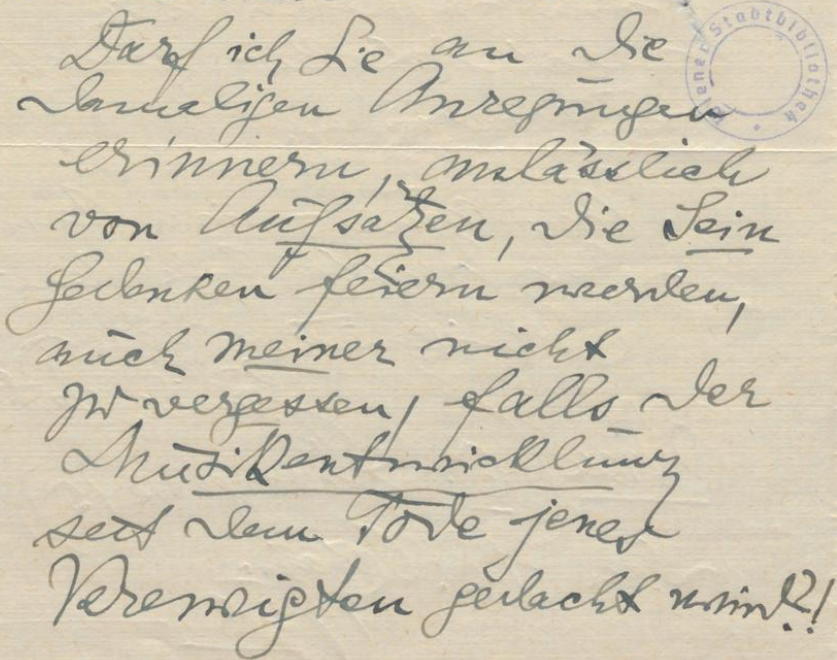 Wiener Stadtbibliothek
Darf ich Sie an die
damaligen Anregungen
erinnern, anlässlich
von Aufsätzen, die Sein
Gedenken feiern werden,
auch meiner nicht
zu vergessen, falls der
Musikentwicklung
seit dem Tode jenes
Verewigten gedacht wird?!